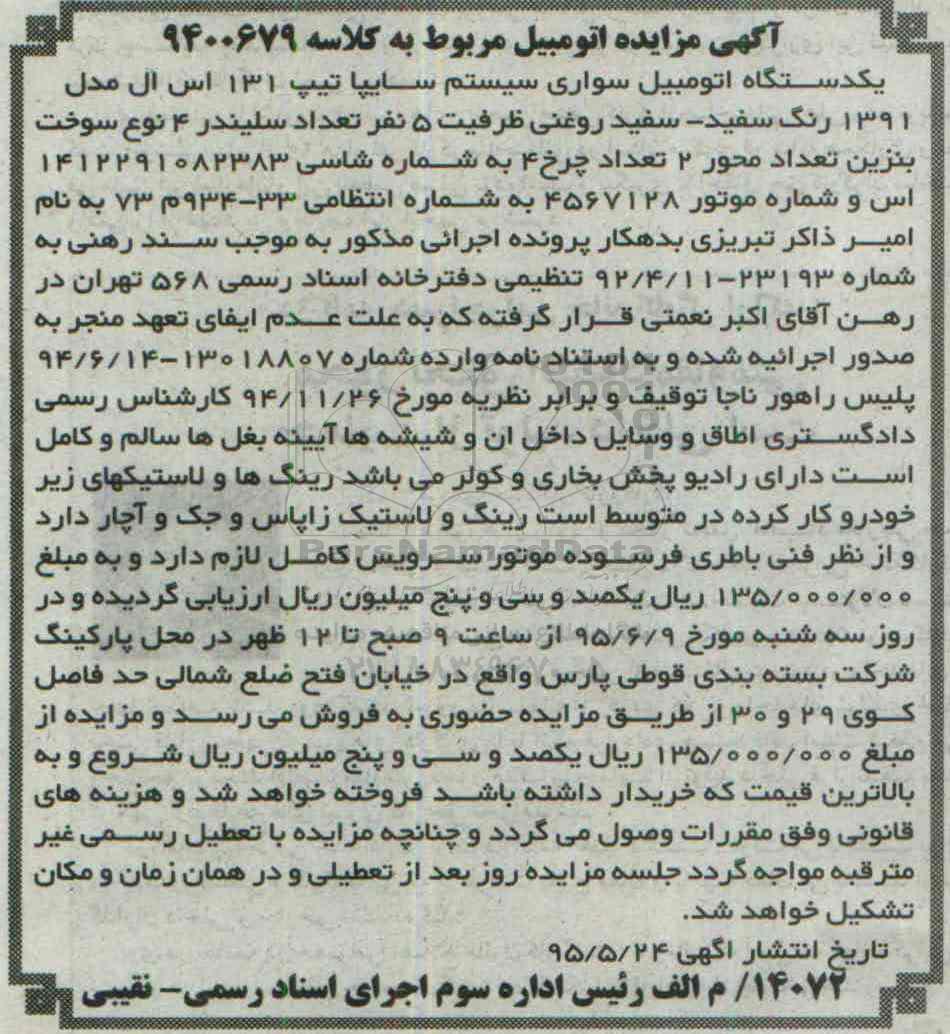 آگهی مزایده اتومبیل مربوط به کلاسه ۹۴۰۰۶۷۹
یکدستگاه اتومبیل سواری سیستم سایپا تیپ ۱۳۱ اس ال مدل
۱۳۹۱ رنگ سفید- سفید روغنی ظرفیت ۵ نفر تعداد سلیندر ۴ نوع سوخت
بنزین تعداد محور ۲ تعداد چرخ۴ به شماره شاسی ۱۴۱۲۲۹۱۰۸۲۳۸۳
اس و شماره موتور ۴۵۶۷۱۲۸ به شماره انتظامی ۳۳-۹۳۴م ۷۳ به نام
امیر ذاکر تبریزی بدهکار پرونده اجرائی مذکور به موجب سند رهنی به
شماره ۲۳۱۹۳-۹۲/۴/۱۱ تنظیمی دفترخانه اسناد رسمی ۵۶۸ تهران در
رهن آقای اکبر نعمتی قرار گرفته که به علت عدم ایفای تعهد منجر به
صدور اجرائیه شده و به استناد نامه وارده شماره ۱۳۰۱۸۸۰۷-۹۴/۶/۱۴
پلیس راهور ناجا توقیف و برابر نظریه مورخ ۹۴/۱۱/۲۶ کارشناس رسمی
دادگستری اطاق و وسایل داخل ان و شیشه ها آیینه بغل ها سالم و کامل
است دارای رادیو پخش بخاری و کولر می باشد رینگ ها و لاستیکهای زیر
خودرو کار کرده در متوسط است رینگ و لاستیک زاپاس و جک و آچار دارد
و از نظر فنی باطری فرسوده موتور سرویس کامل لازم دارد و به مبلغ
۱۳۵/۰۰۰/۰۰۰ ریال یکصد و سی و پنج میلیون ریال ارزیابی گردیده و در
روز سه شنبه مورخ ۹۵/۶/۹ از ساعت ۹ صبح تا ۱۲ ظهر در محل پارکینگ
شرکت بسته بندی قوطی پارس واقع در خیابان فتح ضلع شمالی حد فاصل
کوی ۲۹ و ۳۰ از طریق مزایده حضوری به فروش می رسد و مزایده از
مبلغ ۱۳۵/۰۰۰/۰۰۰ ریال یکصد و سی و پنج میلیون ریال شروع و به
بالاترین قیمت که خریدار داشته باشد فروخته خواهد شد و هزینه های
قانونی وفق مقررات وصول می گردد و چنانچه مزایده با تعطیل رسمی غیر
مترقبه مواجه گردد جلسه مزایده روز بعد از تعطیلی و در همان زمان و مکان
تشکیل خواهد شد.
تاریخ انتشار اگهی ۹۵/۵/۲۴
۱۴۰۷۲/ م الف رئیس اداره سوم اجرای اسناد رسمی- نقیبی
ParsNamadData